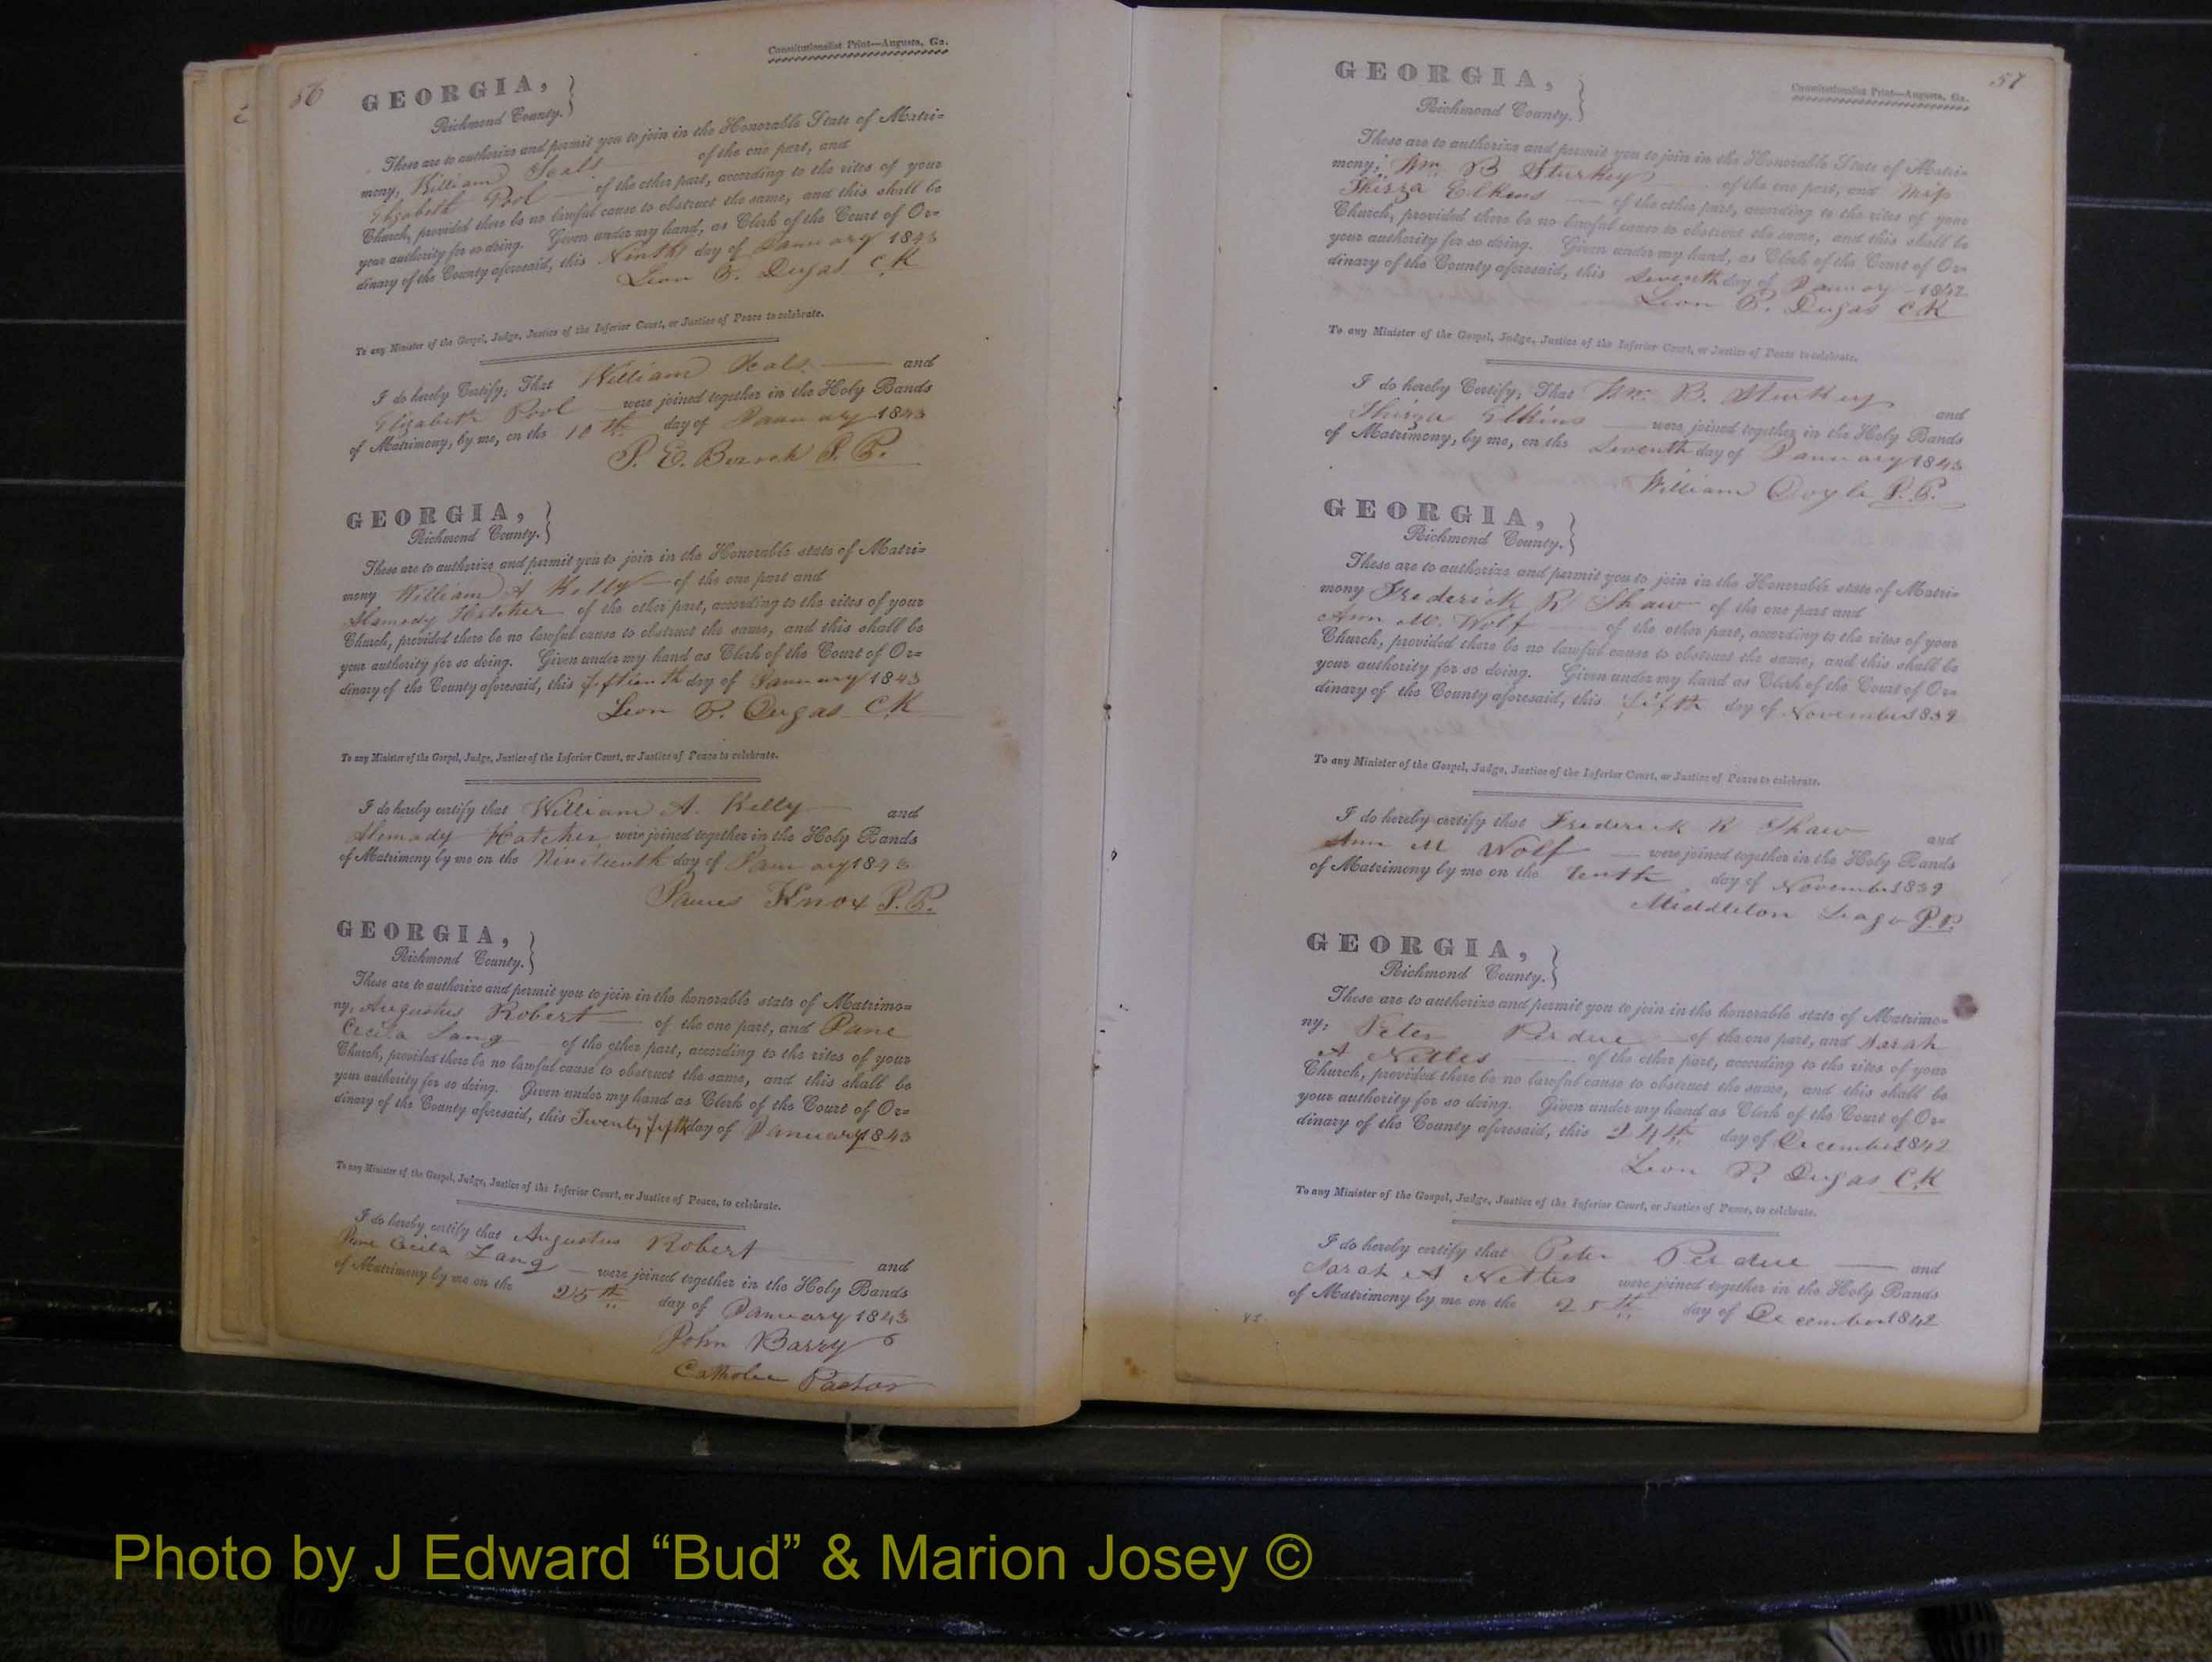 56
Constitutionalist Print—Augusta, Ga.
GEORGIA,
Richmond County.
These are to authorize and permit you to join in the Honorable State of Matri=
mony, William Seals of the one part, and
Elizabeth Pool of the other part, according to the rites of your
Church, provided there be no lawful cause to obstruct the same, and this shall be
your authority for so doing. Given under my hand, as Clerk of the Court of Or=
dinary of the County aforesaid, this Ninth day of January 1843
Leon P. Dugas C K
To any Minister of the Gospel, Judge, Justice of the Inferior Court, or Justice of Peace to celebrate.
I do hereby Certify, That William Seals and
Elizabeth Pool were joined together in the Holy Bands
of Matrimony, by me, on the 10th day of January 1843
J. P.
GEORGIA,
Richmond County.
These are to authorize and permit you to join in the Honorable state of Matri=
mony William A Kelly of the one part and
Alemedy Hatcher of the other part, according to the rites of your
Church, provided there be no lawful cause to obstruct the same, and this shall be
your authority for so doing. Given under my hand as Clerk of the Court of Or=
dinary of the County aforesaid, this fifteenth day of January 1843
Leon P. Dugas C.K
To any Minister of the Gospel, Judge, Justice of the Inferior Court, or Justice of Peace to celebrate.
I do hereby certify that William A. Kelly and
Alemedy Hatcher were joined together in the Holy Bands
of Matrimony by me on the Nineteenth day of January 1843
James Knox J.P.
GEORGIA,
Richmond County.
These are to authorize and permit you to join in the honorable state of Matrimo=
ny, Augustus Robert of the one part, and Jane
Cecila Lang of the other part, according to the rites of your
Church, provided there be no lawful cause to obstruct the same, and this shall be
your authority for so doing. Given under my hand as Clerk of the Court of Or=
dinary of the County aforesaid, this Twenty fifth day of January 1843
To any Minister of the Gospel, Judge, Justice of the Inferior Court, or Justice of Peace, to celebrate.
I do hereby certify that Augustus Robert and
Jane Cecila Lang were joined together in the Holy Bands
of Matrimony by me on the 25th day of January 1843
John Barry
Catholic Pastor
57
Constitutionalist Print—Augusta, Ga.
GEORGIA,
Richmond County.
These are to authorize and permit you to join in the Honorable State of Matri=
mony, Wm. B Sturkey of the one part, and Miss
Thirza Elkins of the other part, according to the rites of your
Church, provided there be no lawful cause to obstruct the same, and this shall be
your authority for so doing. Given under my hand, as Clerk of the Court of Or=
dinary of the County aforesaid, this Seventh day of January 1842
Leon P. Dugas C K
To any Minister of the Gospel, Judge, Justice of the Inferior Court, or Justice of Peace to celebrate.
I do hereby Certify, That Wm. B. Sturkey and
Thirza Elkins were joined together in the Holy Bands
of Matrimony, by me, on the Seventh day of January 1843
William Doyle J.P.
GEORGIA,
Richmond County.
These are to authorize and permit you to join in the Honorable state of Matri=
mony Frederick R Shaw of the one part and
Ann M. Wolf of the other part, according to the rites of your
Church, provided there be no lawful cause to obstruct the same, and this shall be
your authority for so doing. Given under my hand as Clerk of the Court of Or=
dinary of the County aforesaid, this fifth day of November 1839
To any Minister of the Gospel, Judge, Justice of the Inferior Court, or Justice of Peace to celebrate.
I do hereby certify that Frederick R Shaw and
Ann M Wolf were joined together in the Holy Bands
of Matrimony by me on the tenth day of November 1839
Middleton J.P.
GEORGIA,
Richmond County.
These are to authorize and permit you to join in the honorable state of Matrimo=
ny, Peter Perdue of the one part, and Sarah
A Nettles of the other part, according to the rites of your
Church, provided there be no lawful cause to obstruct the same, and this shall be
your authority for so doing. Given under my hand as Clerk of the Court of Or=
dinary of the County aforesaid, this 24th day of December 1842
Leon P. Dugas C.K
To any Minister of the Gospel, Judge, Justice of the Inferior Court, or Justice of Peace, to celebrate.
I do hereby certify that Peter Perdue and
Sarah A Nettles were joined together in the Holy Bands
of Matrimony by me on the 25th day of December 1842
Photo by J Edward “Bud” & Marion Josey ©